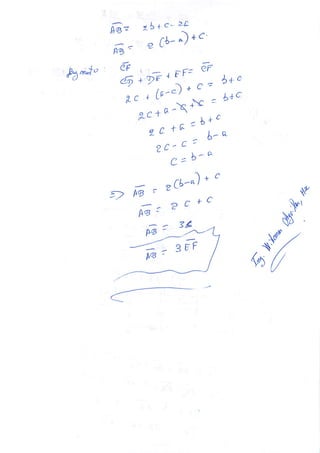 AB = 2b + c - 2a
AB = 2 (b-a) + c.
CF
CD + DE + EF = CF
2c + (a-c) + c = b+c
2c + a - c + c = b+c
2c + a = b+c
2c - c = b-a
c = b-a
=> AB = 2(b-a) + c
AB = 2c + c
AB = 3c
AB = 3EF
Ing.